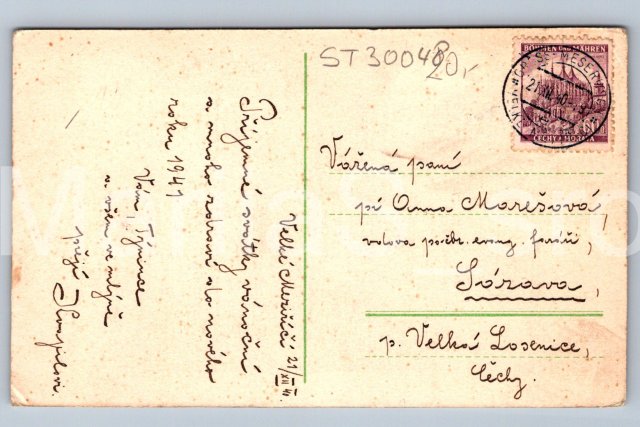 Velké Meziříčí 21/XII 40.
Příjemné svátky vánoční
a mnoho zdraví do nového
roku 1941
Vám, Týnince
a všem ve mlýně
přejí
ST30048
20,-
BÖHMEN UND MÄHREN
ČECHY A MORAVA
Vážená paní
pí Anna Marešová,
vdova po evang. faráři,
Sázava,
p. Velká Losenice,
Čechy.